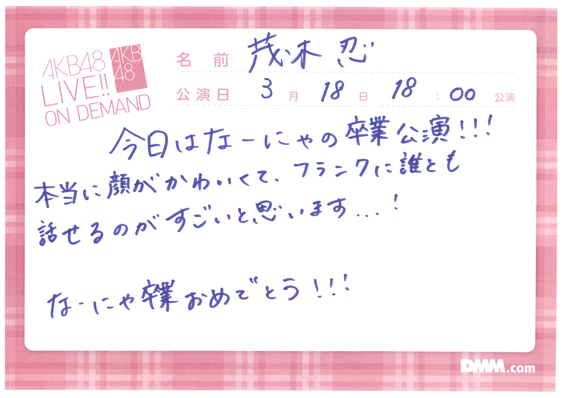 AKB48
LIVE!!
ON DEMAND
AKB
48
名前 茂木忍
公演日 3月18日 18:00公演
今日はなーにゃの卒業公演!!!
本当に顔がかわいくて、フランクに誰とも
話せるのがすごいと思います...!
なーにゃ卒業おめでとう!!!
DMM.com